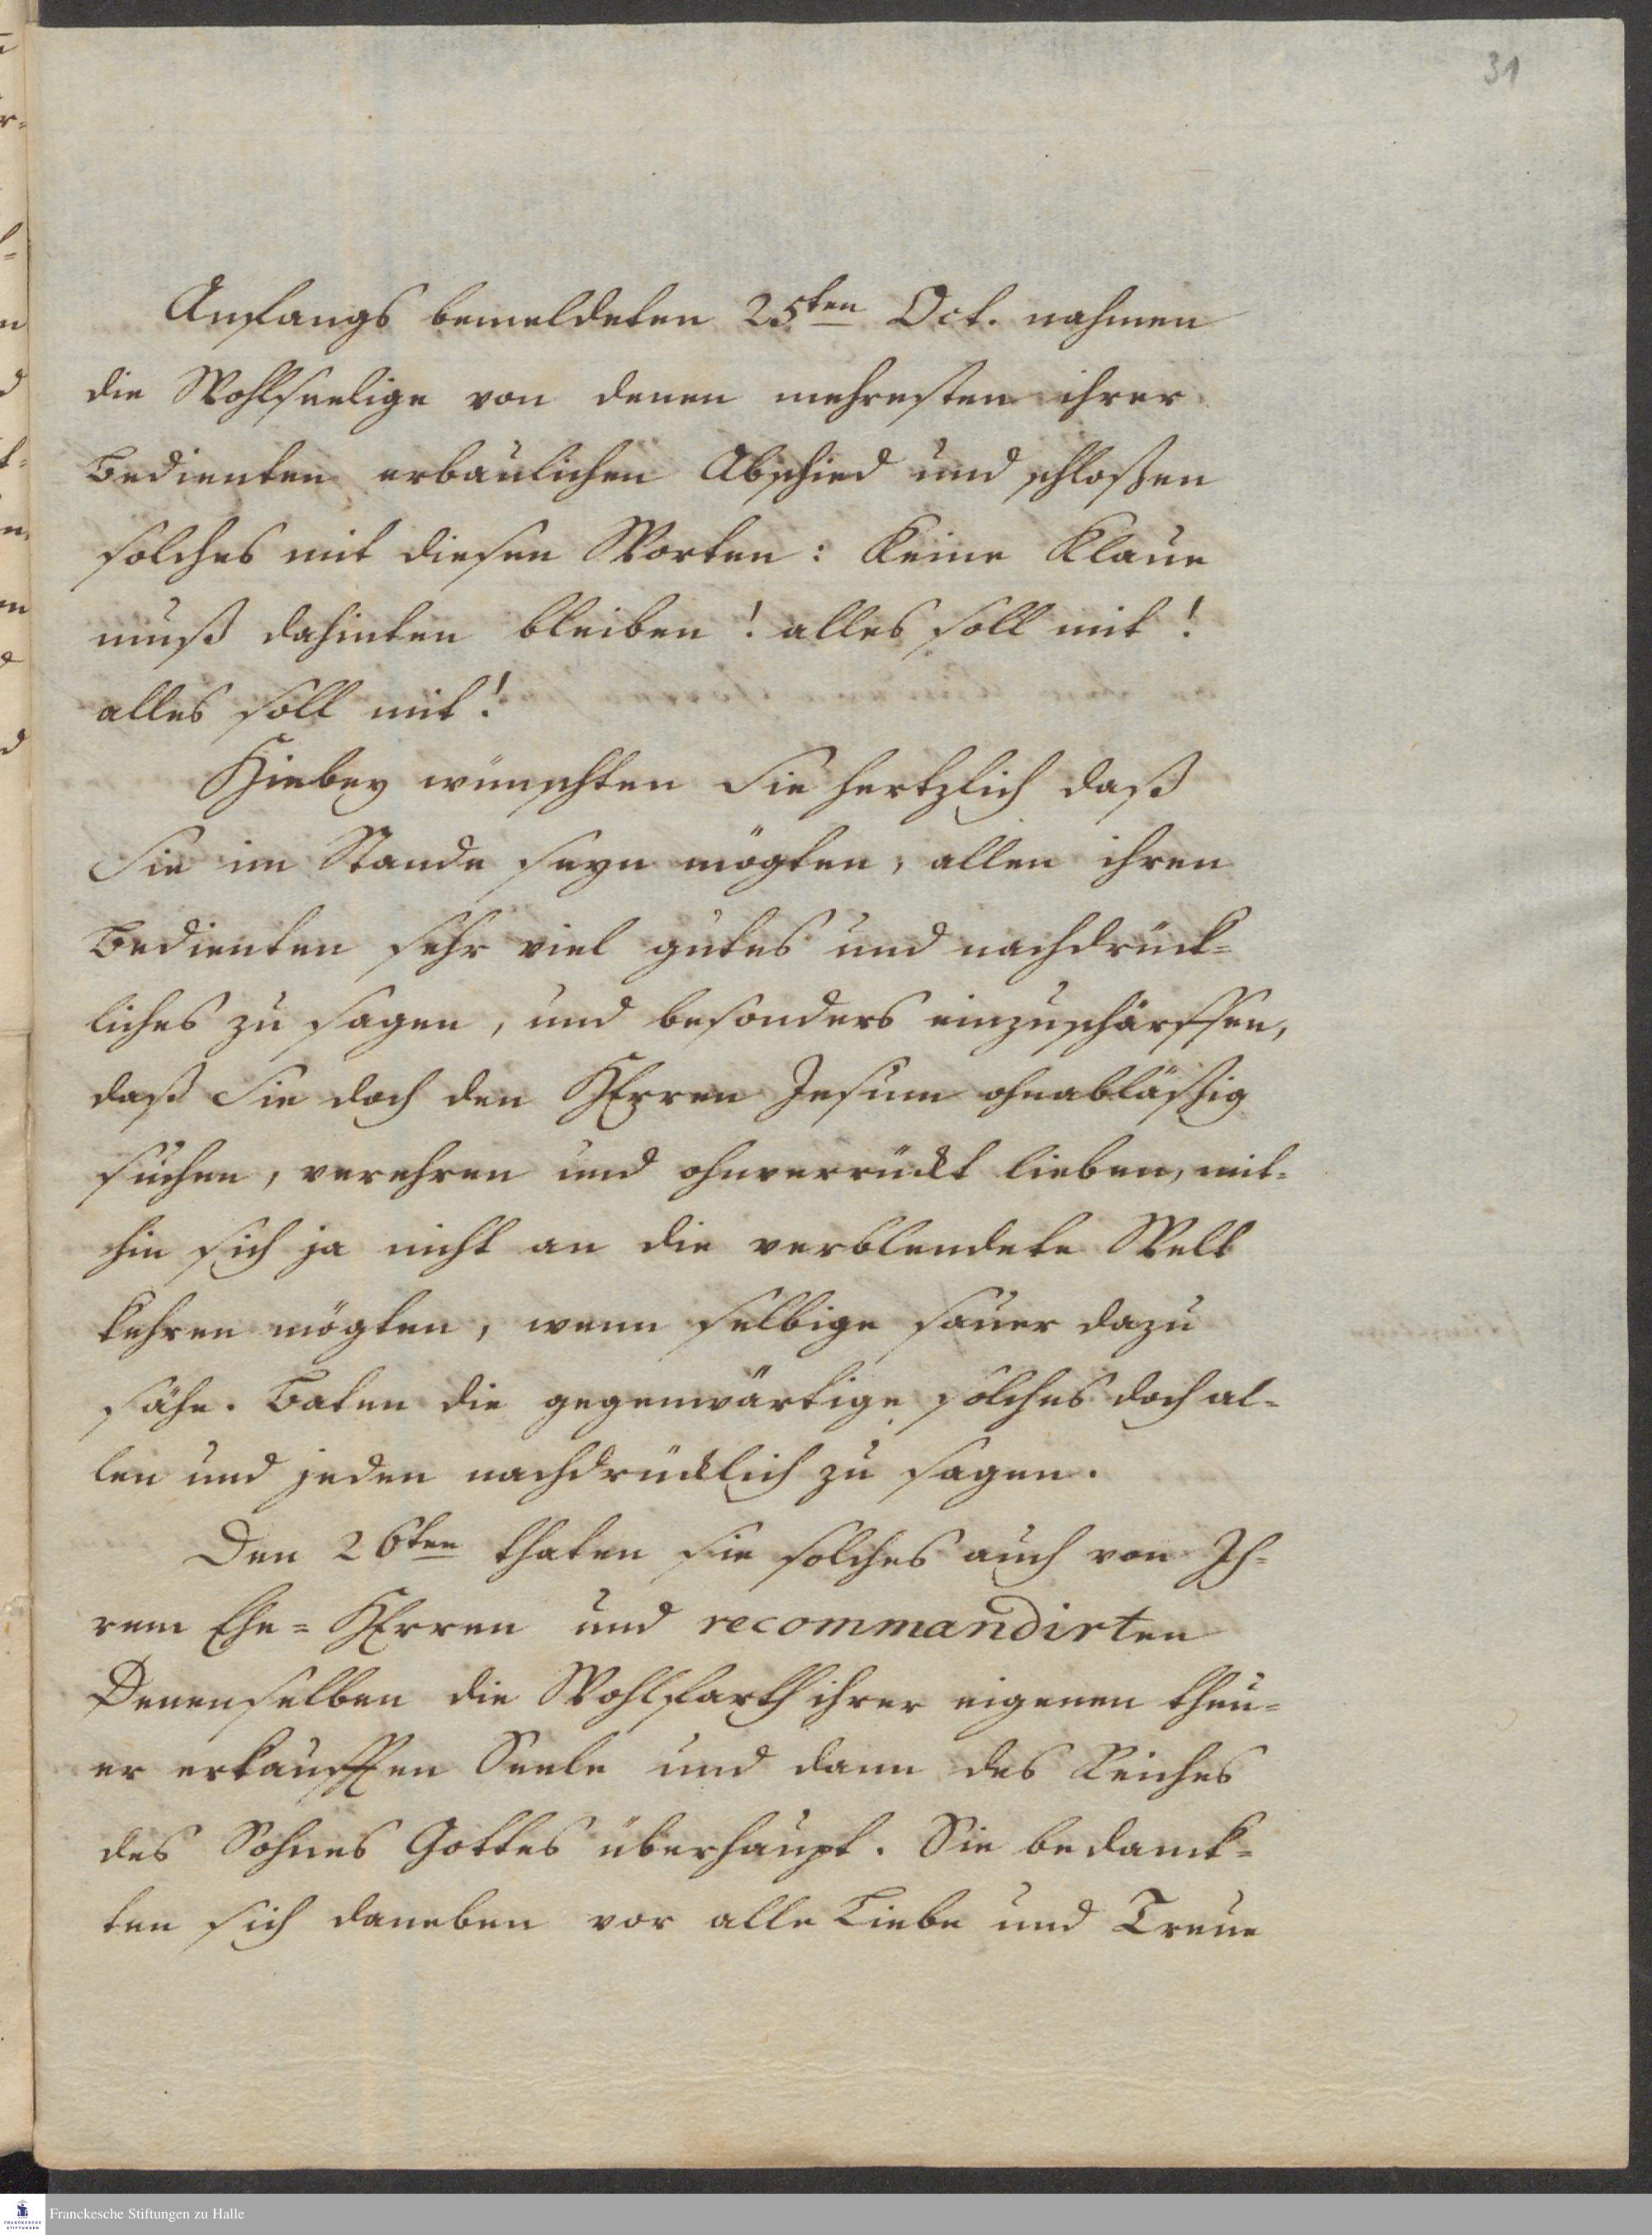 31
Anfangs bemeldeten 25ten Oct. nahmen
die Wohlseelige von denen mehresten ihrer
Bedienten erbaulichen Abschied und schloßen
solches mit diesen Worten: Keine Klaue
muß dahinten bleiben! alles soll mit!
alles soll mit!
Hiebey wünschten Sie hertzlich daß
Sie im Stande seyn mögten, allen ihren
Bedienten sehr viel gutes und nachdrück-
liches zu sagen, und besonders einzuschärffen,
daß Sie doch den HErren Jesum ohnabläßig
suchen, verehren und ohnverrückt lieben, mit-
hin sich ja nicht an die verblendete Welt
kehren mögten, wenn selbige sauer dazu
sähe. Baten die gegenwärtige solches doch al-
len und jeden nachdrücklich zu sagen.
Den 26ten thaten sie solches auch von Ih-
rem Ehe-HErren und recommandirten
Denenselben die Wohlfarth ihrer eigenen theu-
er erkaufften Seele und dann des Reiches
des Sohnes Gottes überhaupt. Sie bedanck-
ten sich daneben vor alle Liebe und Treue
Franckesche Stiftungen zu Halle